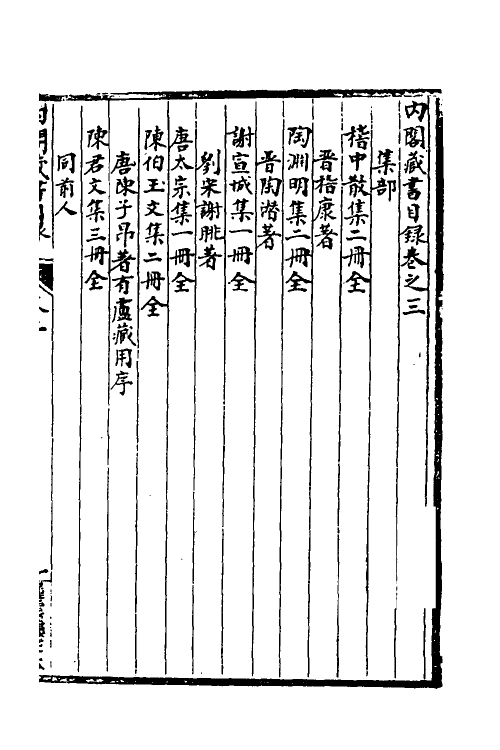 內閣藏書目録卷之三
集部
嵇中散集二冊全
晉嵇康著
陶淵明集二冊全
晉陶潛著
謝宣城集一冊全
劉宋謝朓著
唐太宗集一冊全
陳伯玉文集二冊全
唐陳子昂著有盧藏用序
陳君文集三冊全
同前人